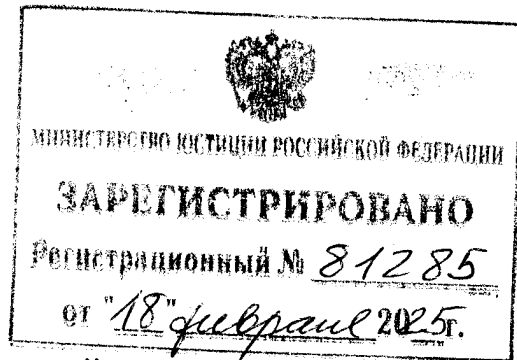 МИНИСТЕРСТВО ЮСТИЦИИ РОССИЙСКОЙ ФЕДЕРАЦИИ
ЗАРЕГИСТРИРОВАНО
Регистрационный № 81285
от "18" февраля 2025г.